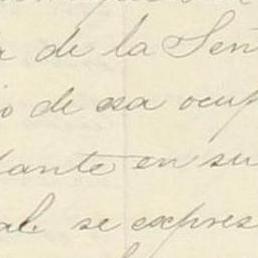 de la Señ
io de esa ocup
dante en su
al se expres